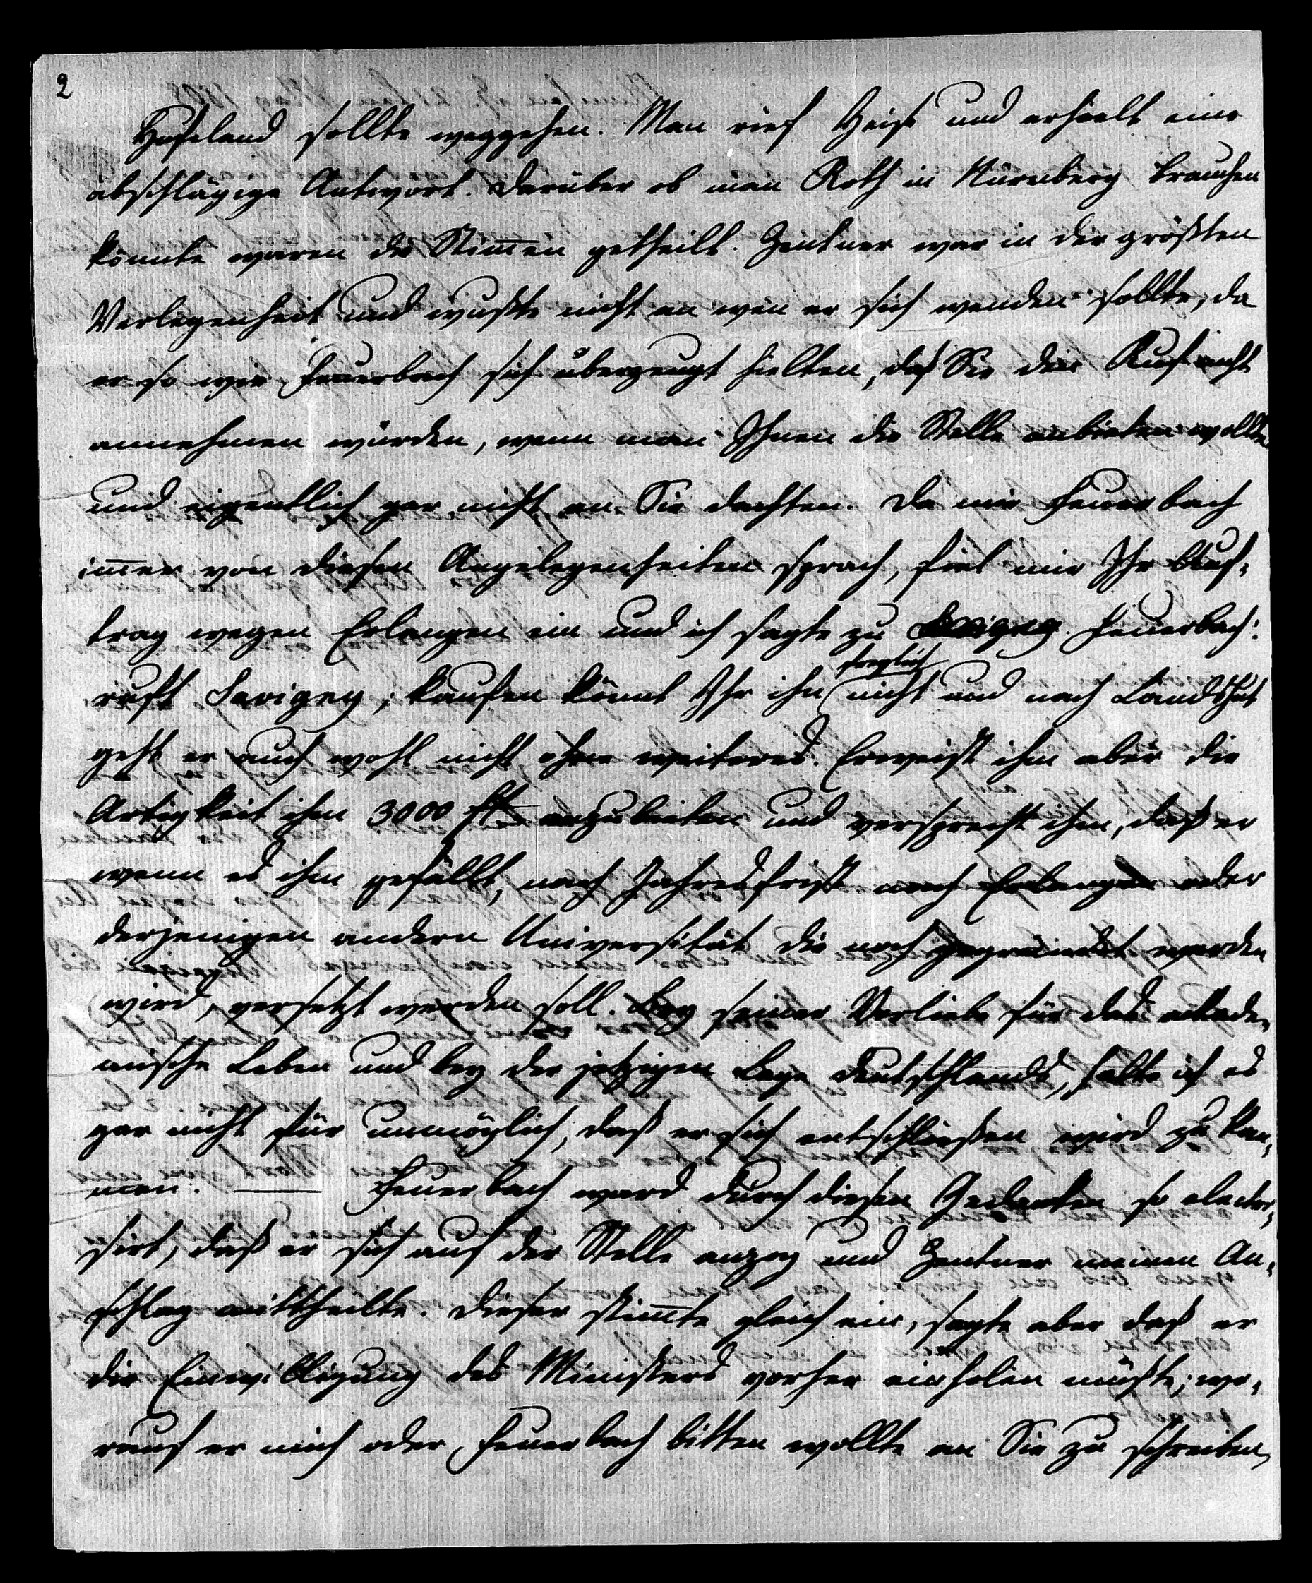 2
Hufeland sollte weggehen. Man rief Heise und erhielt eine
abschlägige Antwort. Darüber ob man Roth in Nürnberg brauchen
könnte waren die Stim̅en getheilt. Zentner war in der größten
Verlegenheit und wußte nicht an wen er sich wenden sollte, da
er so wie Feuerbach sich überzeugt hielten, daß Sie den Ruf nicht
annehmen würden, wenn man Ihnen die Stelle anbieten wollte
und eigentlich gar nicht an Sie dachten. Da mir Feuerbach
im̅er von diesen Angelegenheiten sprach, fiel mir Ihr Auf-
trag wegen Erlangen ein und ich sagte zu Feuerbach:
ruft Savigny; kaufen könnt Ihr ihn freylich nicht und nach Landshut
geht er auch wohl nicht ohne weiteres. Erweist ihm aber die
Artigkeit ihm 3000 fl. anzubieten und versprecht ihm, daß er
wenn es ihm gefällt, nach Jahresfrist nach Erlangen oder
derjenigen andern Universität die noch gegründet werden
wird, versetzt werden soll. Bey seiner Vorliebe für das akade-
mische Leben und bey der jetzigen Lage Deutschlands, halte ich es
gar nicht für unmöglich, daß er sich entschließen wird zu kom-
men. — Feuerbach ward durch diesen Gedanken so electri-
sirt, daß er sich auf der Stelle anzog und Zentner meinen An-
schlag mittheilte. Dieser stim̅te gleich ein, sagte aber daß er
die Einwilligung des Ministers vorher einholen müßte; wo-
rauf er mich oder Feuerbach bitten wollte an Sie zu schreiben,